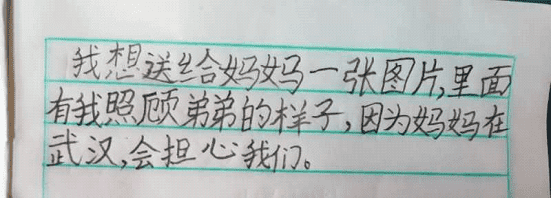 我想送给妈妈一张图片,里面
有我照顾弟弟的样子,因为妈妈在
武汉,会担心我们。